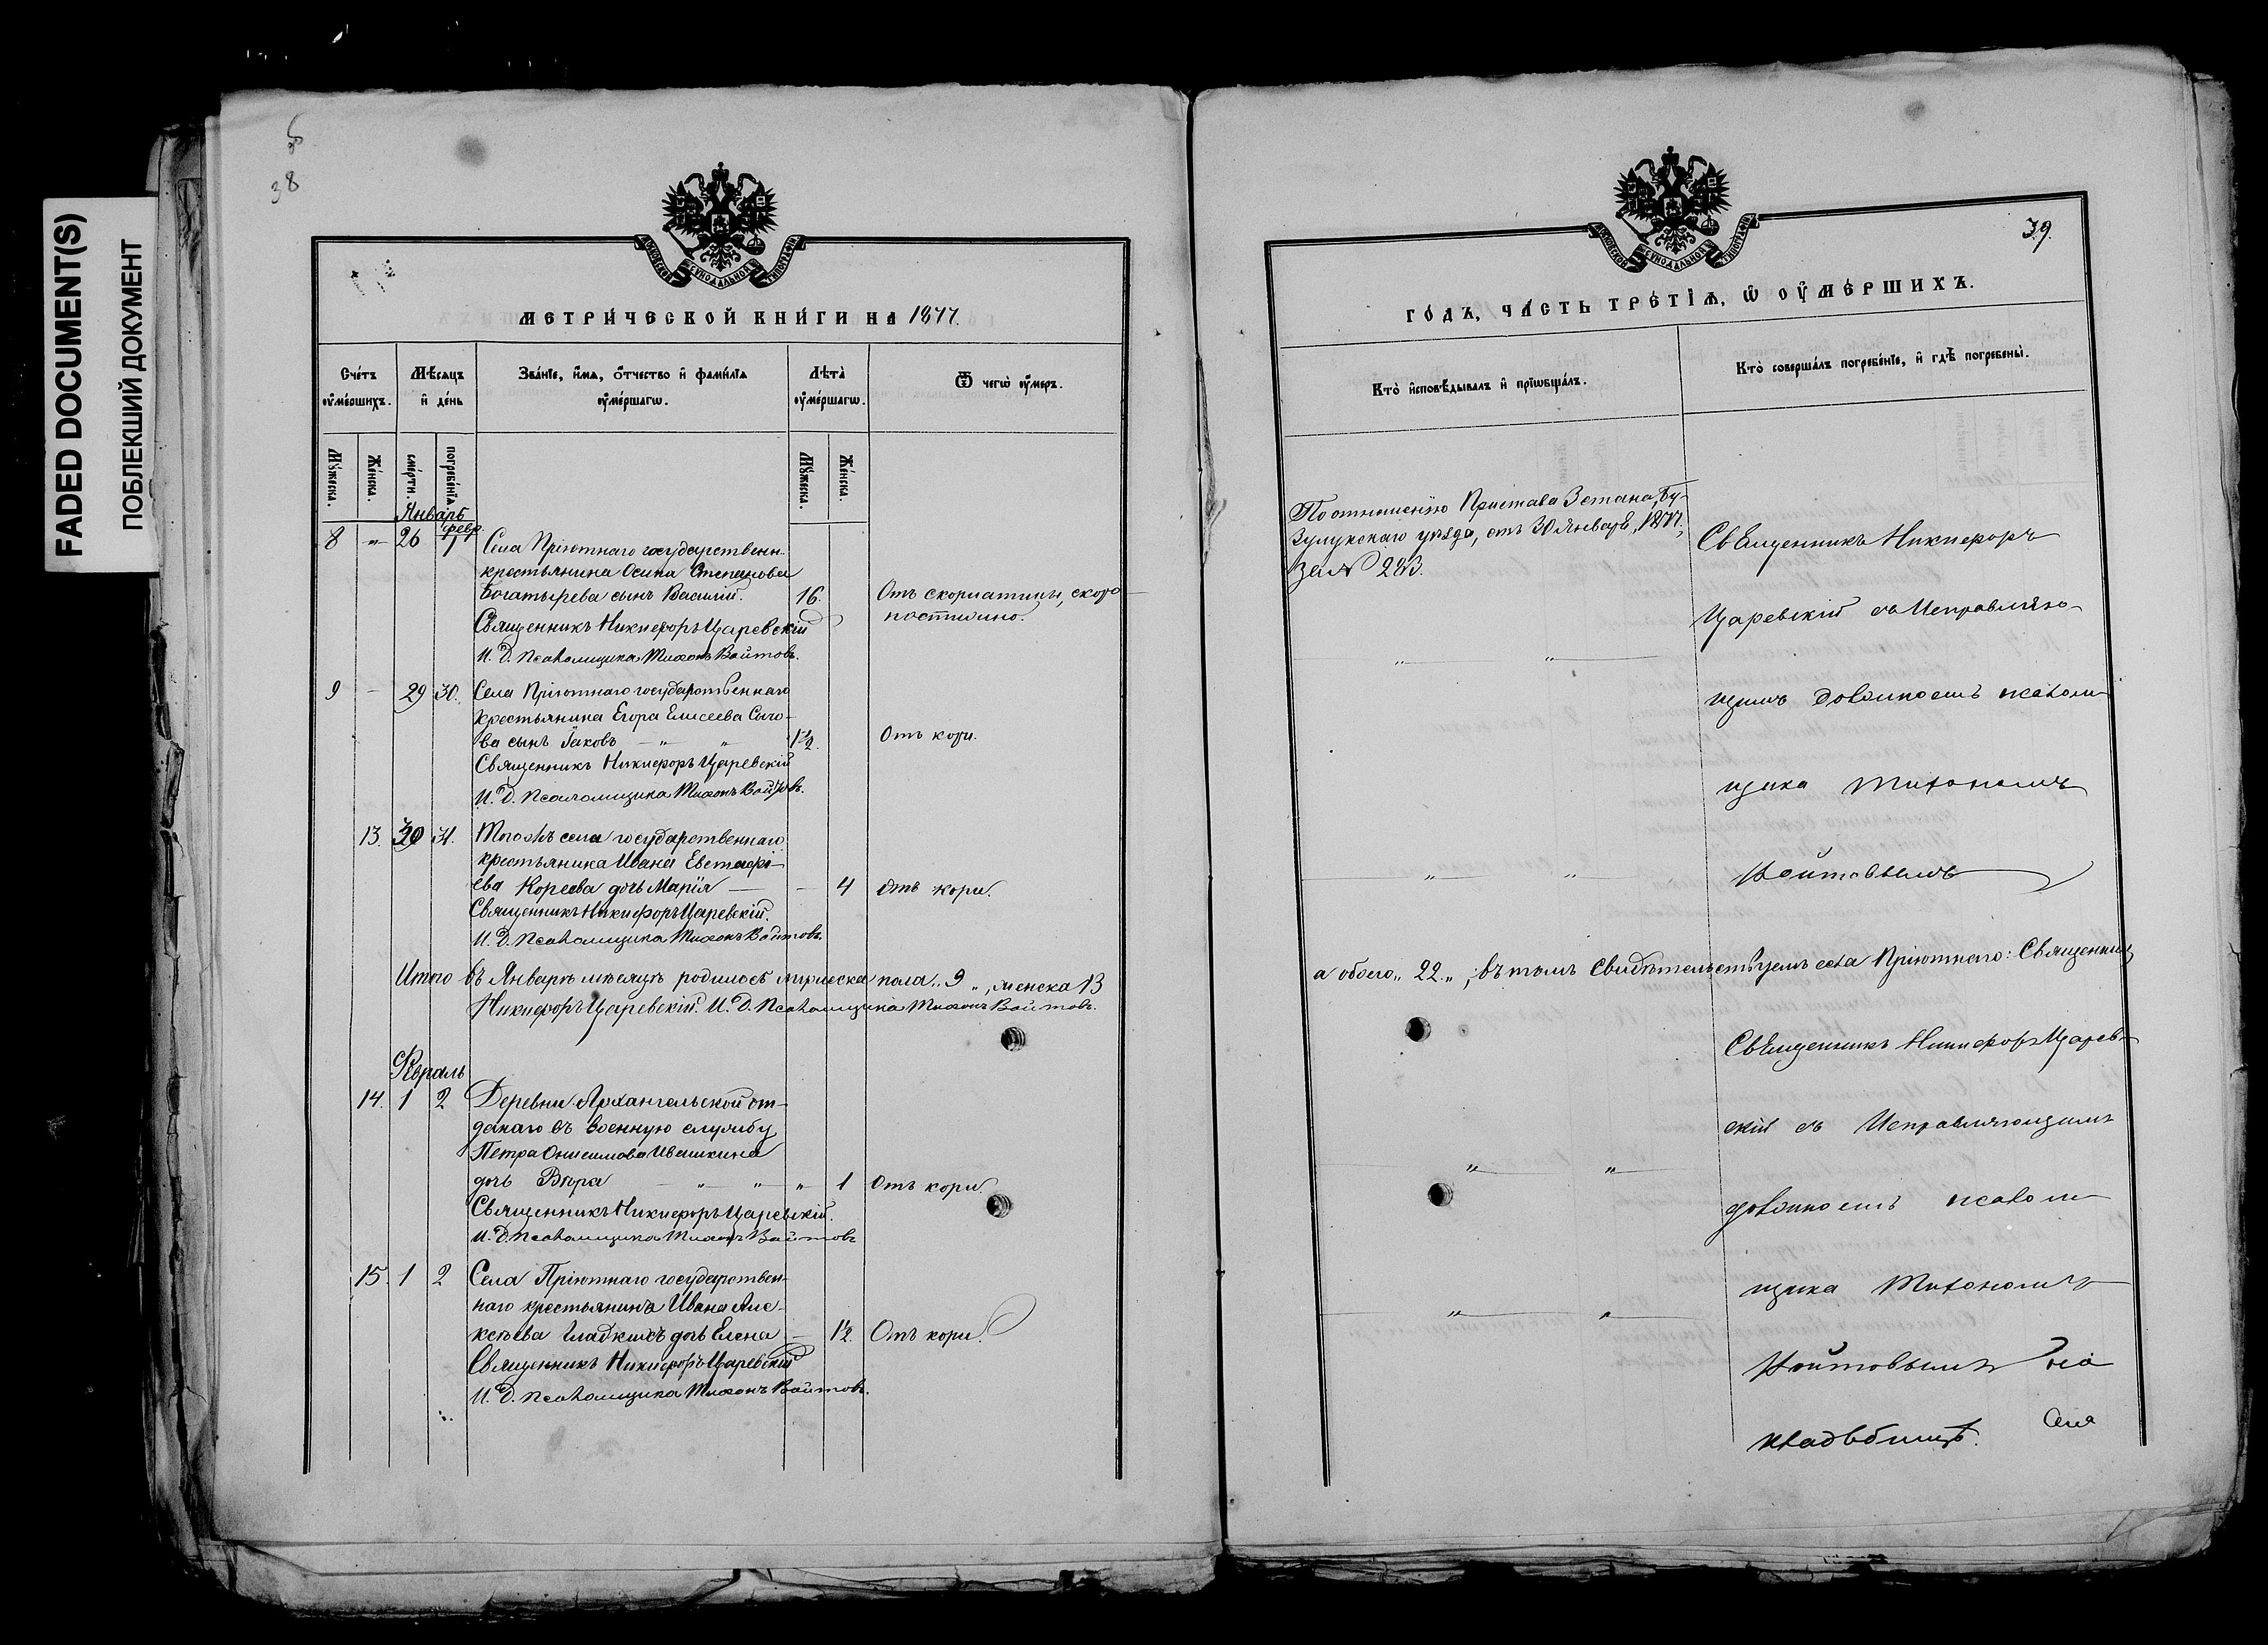 FADED DOCUMENT(S)
ПОБЛЕКШИЙ ДОКУМЕНТ
38
МОСКОВСКОЙ СѴНОДАЛЬНОЙ ТИПОГРАФІИ
МЕТРИ́ЧЕСКОЙ КНИ́ГИ НА 1877.
Сче́тъ ᲂу҆ме́ршихъ.
Мѣ́сяцъ и҆ де́нь
Зва́нїе, и҆́мѧ, ѻ҆́тчество и҆ фами́лїѧ ᲂу҆ме́ршагѡ.
Лѣ́та ᲂу҆ме́ршагѡ.
Ѿ чегѡ̀ ᲂу҆́меръ.
Мꙋ́жеска.
Же́нска.
сме́рти.
погребе́нїѧ
Мꙋ́жеска.
Же́нска.
Январь
февр.
8 " 26 1 Села Пріютнаго государственн.
крестьянина Осипа Степанова
Богатырева сынъ Василій. 16. Отъ скорлатины, скоро
постижно.
Священникъ Никифоръ Царевскій
И. Д. Псаломщика Тихонъ Войтовъ.
9 - 29 30. Села Пріютнаго государственнаго
крестьянина Егора Елисеева Сыго-
ва сынъ Іаковъ — " " 1½. Отъ кори.
Священникъ Никифоръ Царевскій
И. Д. Псаломщика Тихонъ Войтовъ.
13. 30 31. Того жъ села государственнаго
крестьянина Ивана Евстафі-
ева Кореева дочь Марія — - 4 Отъ кори.
Священникъ Никифоръ Царевскій.
И. Д. Псаломщика Тихонъ Войтовъ.
Итого въ Январѣ мѣсяцѣ родилось мужеска пола „ 9 „, женска 13
Никифоръ Царевскій. И. Д. Псаломщика Тихонъ Войтовъ.
Февраль
14. 1 2 Деревни Архангельской от-
данаго въ военную службу
Петра Онисимова Ивашкина
дочь Вѣра " " " 1 Отъ кори.
Священникъ Никифоръ Царевскій.
И. Д. Псаломщика Тихонъ Войтовъ
15. 1 2 Села Пріютнаго государствен-
наго крестьянина Ивана Але-
ксѣева Гладкихъ дочь Елена — 1½. Отъ кори.
Священникъ Никифоръ Царевскій
И. Д. Псаломщика Тихонъ Войтовъ.
39.
МОСКОВСКОЙ СѴНОДАЛЬНОЙ ТИПОГРАФІИ
ГО́ДЪ, ЧА́СТЬ ТРЕ́ТІѦ, Ѡ҆ ОУ҆МЕ́РШИХЪ.
Кто̀ и҆сповѣ́дывалъ и҆ прїѡбща́лъ.
Кто̀ соверша́лъ погребе́нїе, и҆ гдѣ̀ погребены̀.
По отношенію Пристава 3 стана, Бу-
зулукскаго уѣзда, отъ 30 Января, 1877.,
за № 283.
Священникъ Никифоръ
Царевскій съ Исправляю-
" "
щимъ должность псалом-
щика Тихономъ
Войтовымъ
" "
а обоего „ 22 „, въ томъ свидѣтельствуемъ села Пріютнаго: Священникъ
Священникъ Никифоръ Царев-
скій съ Исправляющимъ
" "
должность псалом-
щика Тихономъ
" "
Войтовымъ на
кладбищѣ. села